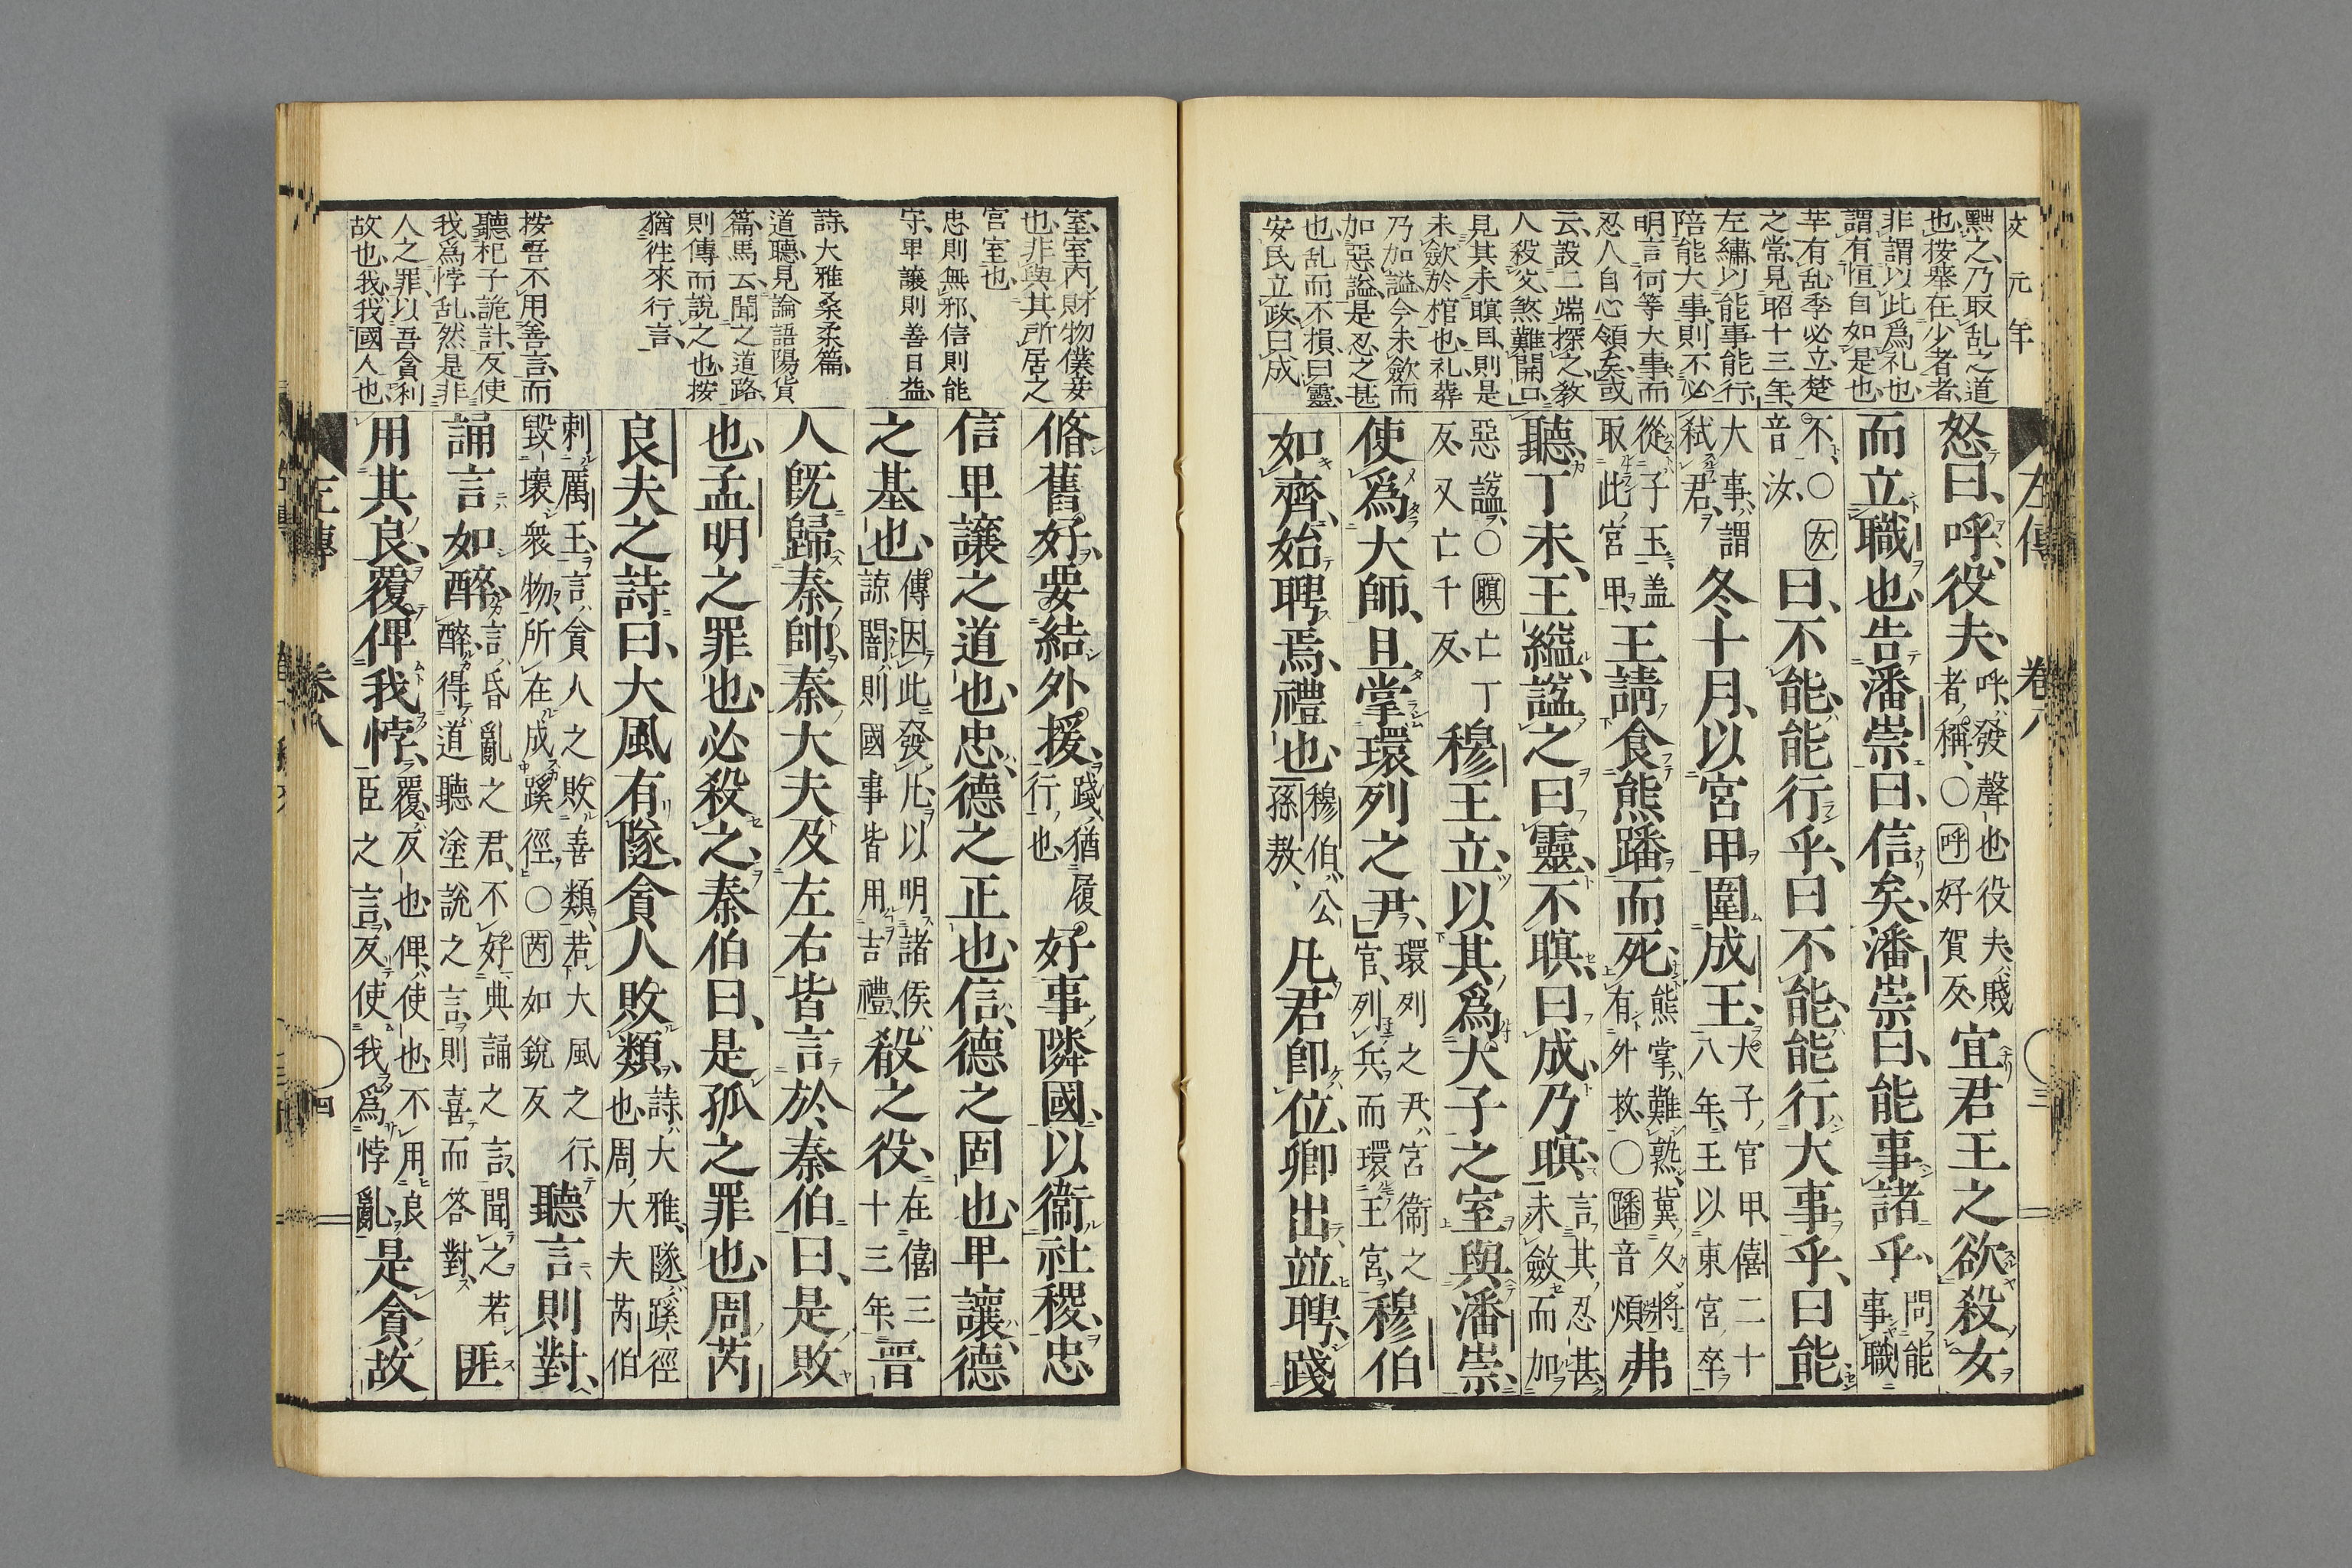 文元年
黜之、乃取乱之道
也、按舉在少者者、
非謂以此爲礼也
謂有恒自如是也、
芉有乱季必立楚
之常、見昭十三年、
左繡以能事能行、
陪能大事、則不必
明言何等大事而
忍人自心領矣或
云、設二端探之教
人殺父煞難開口、
見其未瞑目、則是
未歛於棺也、礼葬
乃加謚、今未歛而
加惡謚、是忍之甚
也、乱而不損曰靈、
安民立政曰成
怒曰、呼、役夫、呼發聲也役夫賤者稱、○呼好賀反、宜君王之欲殺女
而立職也、告潘崇曰、信矣、潘崇曰、能事諸乎、問能事職
不、○女音汝、曰、不能、能行乎、曰不能、能行大事乎、曰能、
大事、謂弒君、冬十月、以宮甲圍成王、大子官甲僖二十八年王以東宮卒
從子玉、蓋取此宮甲、王請食熊蹯而死、熊掌難熟冀久將有外救、○蹯音煩、弗
聽、丁未、王縊、謚之曰靈、不瞑、曰成、乃瞑、言其忍甚未斂而加
惡謚、○瞑亡丁反、又亡千反、穆王立、以其爲大子之室與潘崇、
使爲大師、且掌環列之尹、環列之尹、宮衞之官、列兵而環王宮、穆伯
如齊、始聘焉、禮也、穆伯、公孫敖、凡君卽位、卿出竝聘、踐
左傳
卷八
三
室、室内財物僕妾
也、非與其所居之
宮室也、
忠則無邪、信則能
守、卑讓則善日益、
詩、大雅桑柔篇、
道聽、見論語陽貨
篇、馬云、聞之道路、
則傳而説之也、按
猶徃來行言、
按吾不用善言、而
聽杞子詭計、反使
我爲悖乱、然是非
人之罪、以吾貪利
故也、我我國人也、
脩舊好、要結外援、踐猶履行也、好事隣國、以衞社稷、忠
信卑讓之道也、忠、德之正也、信、德之固也、卑讓、德
之基也、傳因此發凡、以明諸侯諒闇、則國事皆用吉禮、殽之役、在僖三十三年、晉
人旣歸秦帥、秦大夫及左右皆言於、秦伯曰、是敗
也、孟明之罪也、必殺之、秦伯曰、是孤之罪也、周芮
良夫之詩曰、大風有隧、貪人敗類、詩大雅、隧蹊徑也、周大夫芮伯
刺厲王、言貪人之敗善類、若大風之行、毀壞衆物、所在成蹊徑、○芮如銳反 聽言則對、
誦言如醉、言昏亂之君、不好典誦之言、聞之若醉、得道聽塗說之言、則喜而答對、匪
用其良、覆俾我悖、覆反也俾使也不用良臣之言、反使我爲悖亂、是貪故
左傳
卷八
四